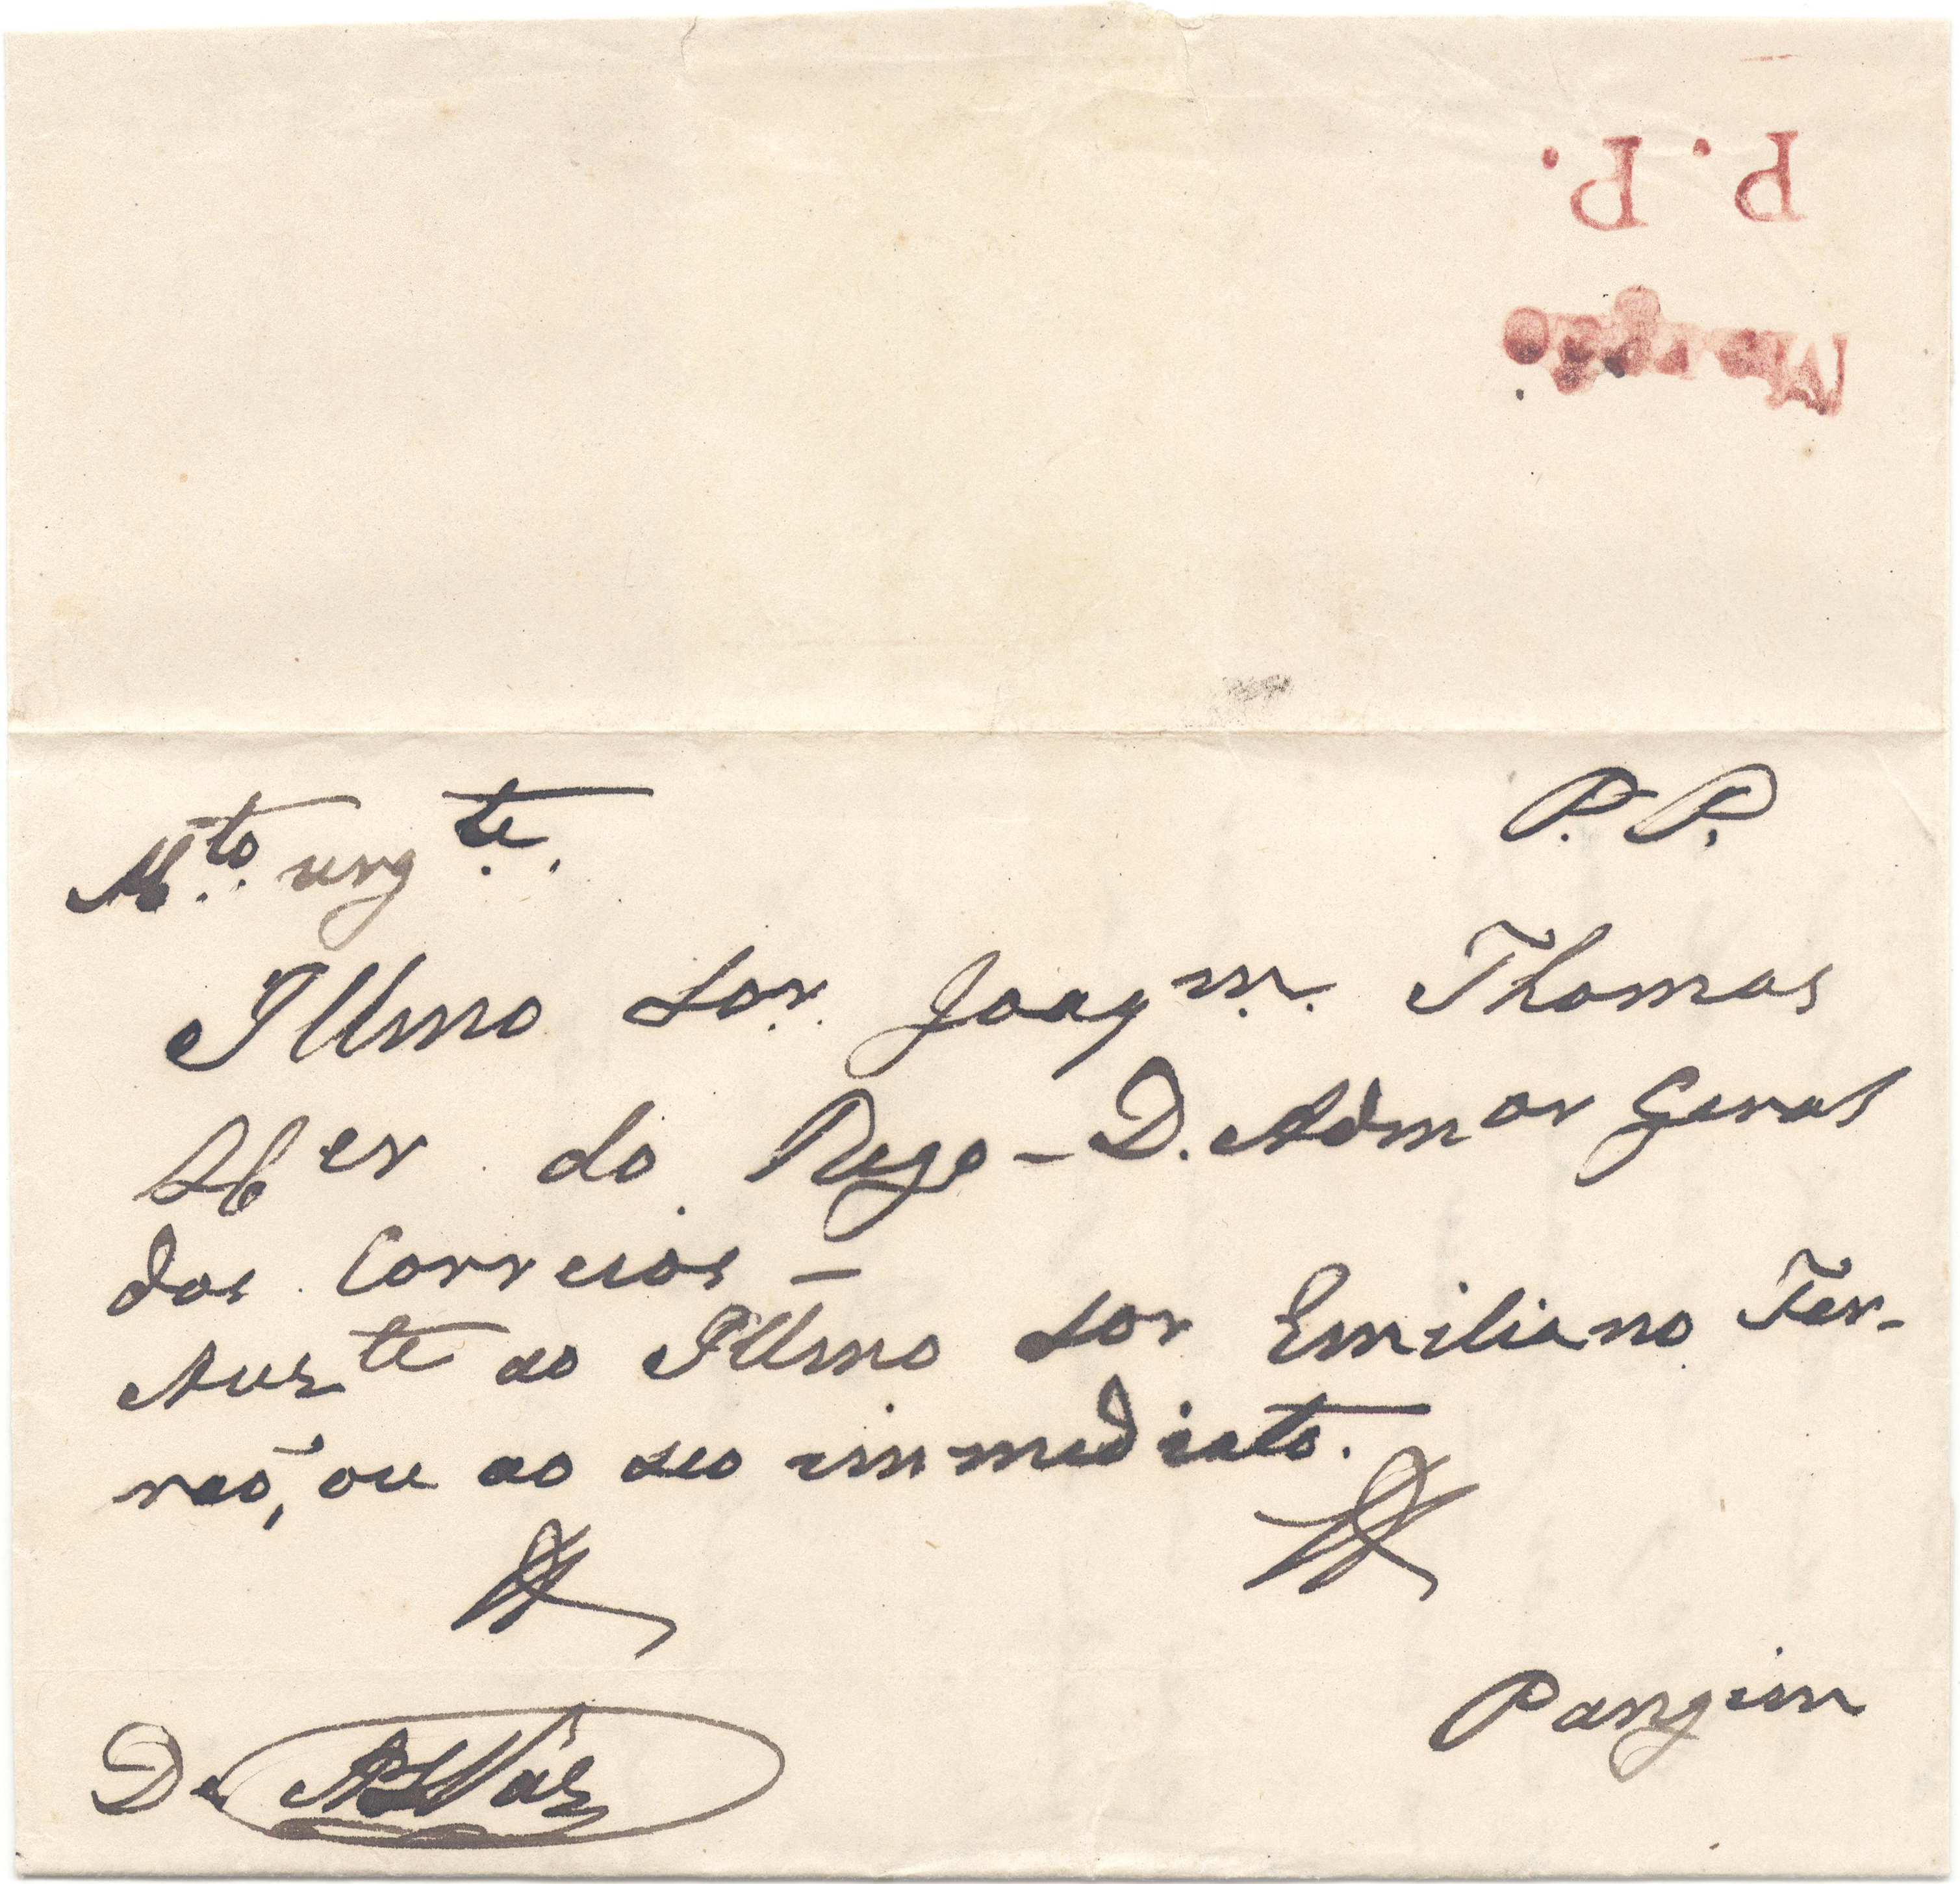 P. P.
Margão
P. P.
Mto. urgte.
Illmo Sor. Joaqm. Thomas
do Rego - D. Admor Geral
dos Correios -
Auzte ao Illmo Sor Emiliano Fer-
rão, ou ao seo immediato.
Pangim
De